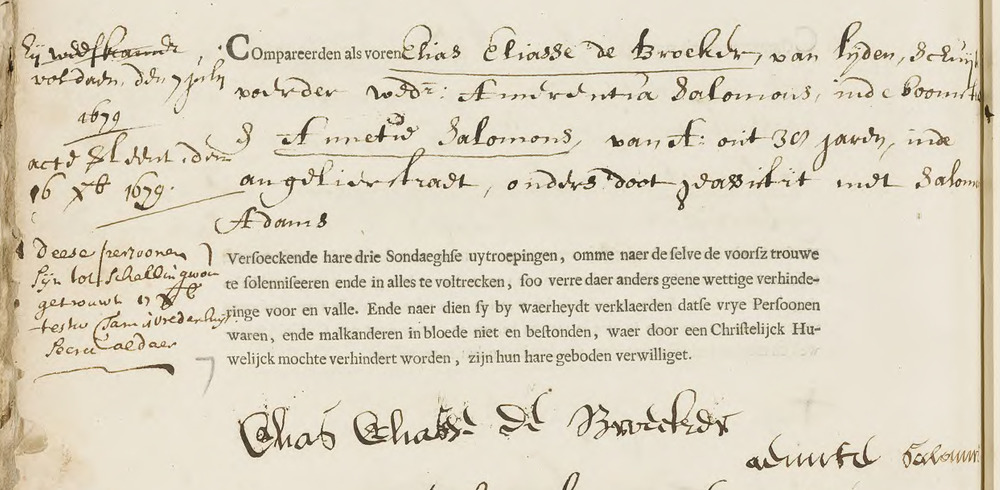 hij weeskamer
voldaen, den 7 july
1679
acte verleent den
16 xb 1679.
Deese persoonen
sijn tot Schellingwou
getrouwt 17 xb
testo
Compareerden als voren Elias Eliasse de Broeker, van Lyden, schuijt
voerder wedr: Amerentia Salomons, inde boomst
& Annetie Salomons, van A: out 30 jaren, inde
angelierstraet, ouders doot geassisteert met Salom
Adams
Versoeckende hare drie Sondaeghse uytroepingen, omme naer de selve de voorsz trouwe
te solenniseeren ende in alles te voltrecken, soo verre daer anders geene wettige verhinde-
ringe voor en valle. Ende naer dien sy by waerheydt verklaerden datse vrye Persoonen
waren, ende malkanderen in bloede niet en bestonden, waer door een Christelijck Hu-
welijck mochte verhindert worden, zijn hun hare geboden verwilliget.
Elias Eliasse de Broeker